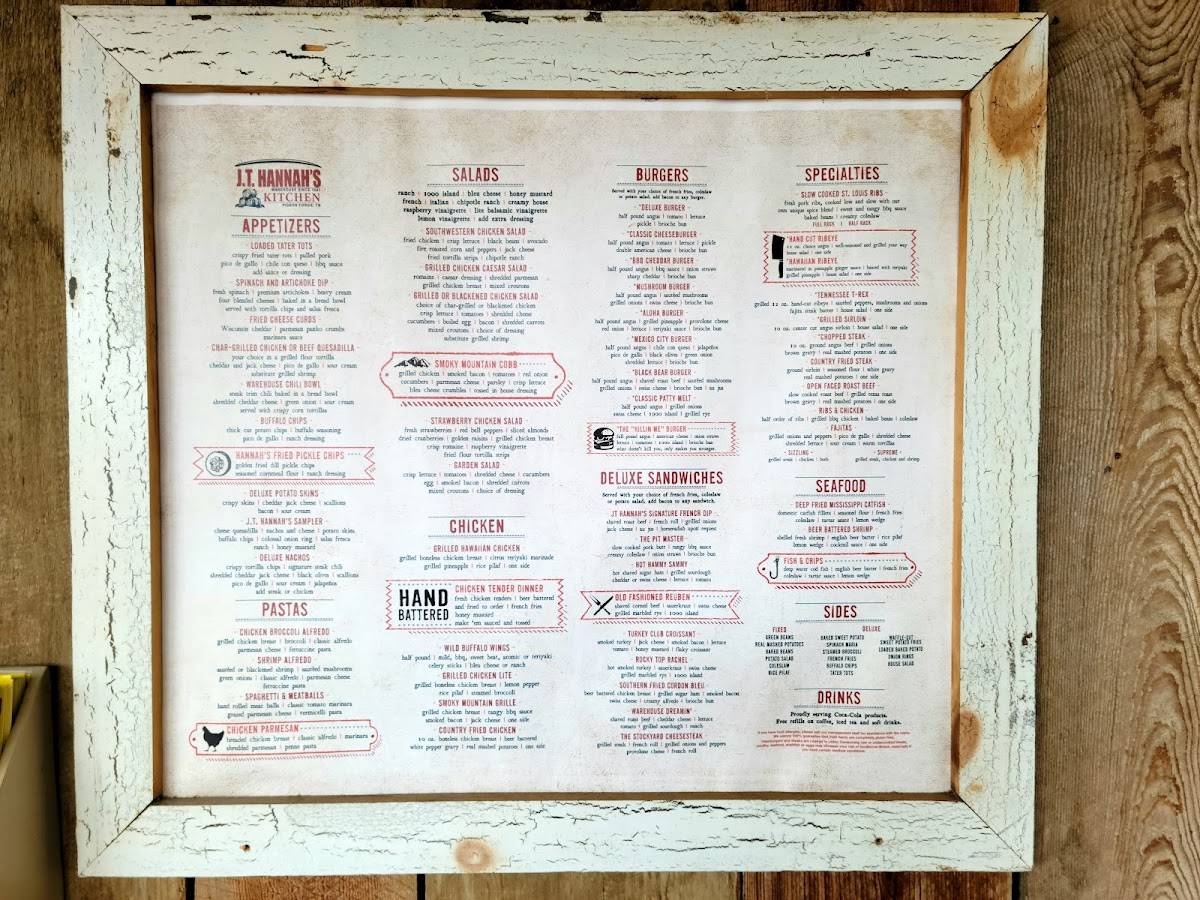 J.T. HANNAH'S
KITCHEN
PIGEON FORGE, TN
APPETIZERS
- LOADED TATER TOTS -
crispy fried tater tots | pulled pork
pico de gallo | chile con queso | bbq sauce
add sauce or dressing
- SPINACH AND ARTICHOKE DIP -
fresh spinach | premium artichokes | heavy cream
four blended cheeses | baked in a bread bowl
served with tortilla chips and salsa fresca
- FRIED CHEESE CURDS -
Wisconsin cheddar | parmesan panko crumbs
marinara sauce
- CHAR-GRILLED CHICKEN OR BEEF QUESADILLA -
your choice in a grilled flour tortilla
cheddar and jack cheese | pico de gallo | sour cream
substitute grilled shrimp
- WAREHOUSE CHILI BOWL -
steak trim chili baked in a bread bowl
shredded cheddar cheese | green onion | sour cream
served with crispy corn tortillas
- BUFFALO CHIPS -
thick cut potato chips | buffalo seasoning
pico de gallo | ranch dressing
HANNAH'S FRIED PICKLE CHIPS
golden fried dill pickle chips
seasoned cornmeal flour | ranch dressing
- DELUXE POTATO SKINS -
crispy skins | cheddar jack cheese | scallions
bacon | sour cream
- J.T. HANNAH'S SAMPLER -
cheese quesadilla | nachos and cheese | potato skins
buffalo chips | colossal onion ring | salsa fresca
ranch | honey mustard
- DELUXE NACHOS -
crispy tortilla chips | signature steak chili
shredded cheddar jack cheese | black olives | scallions
pico de gallo | sour cream | jalapeños
add steak or chicken
PASTAS
- CHICKEN BROCCOLI ALFREDO -
grilled chicken breast | broccoli | classic alfredo
parmesan cheese | fettuccine pasta
- SHRIMP ALFREDO -
sautéed or blackened shrimp | sautéed mushrooms
green onions | classic alfredo | parmesan cheese
fettuccine pasta
- SPAGHETTI & MEATBALLS -
hand rolled meat balls | classic tomato marinara
grated parmesan cheese | vermicelli pasta
CHICKEN PARMESAN
breaded chicken breast | classic alfredo | marinara
shredded parmesan | penne pasta
SALADS
ranch | 1000 island | bleu cheese | honey mustard
french | italian | chipotle ranch | creamy house
raspberry vinaigrette | lite balsamic vinaigrette
lemon vinaigrette | add extra dressing
- SOUTHWESTERN CHICKEN SALAD -
fried chicken | crisp lettuce | black beans | avocado
fire roasted corn and peppers | jack cheese
fried tortilla strips | chipotle ranch
- GRILLED CHICKEN CAESAR SALAD -
romaine | caesar dressing | shredded parmesan
grilled chicken breast | mixed croutons
- GRILLED OR BLACKENED CHICKEN SALAD -
choice of char-grilled or blackened chicken
crisp lettuce | tomatoes | shredded cheese
cucumbers | boiled egg | bacon | shredded carrots
mixed croutons | choice of dressing
substitute grilled shrimp
SMOKY MOUNTAIN COBB
grilled chicken | smoked bacon | tomatoes | red onion
cucumbers | parmesan cheese | parsley | crisp lettuce
bleu cheese crumbles | tossed in house dressing
- STRAWBERRY CHICKEN SALAD -
fresh strawberries | red bell peppers | sliced almonds
dried cranberries | golden raisins | grilled chicken breast
crisp romaine | raspberry vinaigrette
fried flour tortilla strips
- GARDEN SALAD -
crisp lettuce | tomatoes | shredded cheese | cucumbers
egg | smoked bacon | shredded carrots
mixed croutons | choice of dressing
CHICKEN
- GRILLED HAWAIIAN CHICKEN -
grilled boneless chicken breast | citrus teriyaki marinade
grilled pineapple | rice pilaf | one side
HAND
BATTERED
CHICKEN TENDER DINNER
fresh chicken tenders | beer battered
and fried to order | french fries
honey mustard
make 'em sauced and tossed
- WILD BUFFALO WINGS -
half pound | mild, bbq, sweet heat, atomic or teriyaki
celery sticks | bleu cheese or ranch
- GRILLED CHICKEN LITE -
grilled boneless chicken breast | lemon pepper
rice pilaf | steamed broccoli
- SMOKY MOUNTAIN GRILLE -
grilled chicken breast | tangy bbq sauce
smoked bacon | jack cheese | one side
- COUNTRY FRIED CHICKEN -
10 oz. boneless chicken breast | beer battered
white pepper gravy | real mashed potatoes | one side
BURGERS
Served with your choice of french fries, coleslaw
or potato salad, add bacon to any burger.
- *DELUXE BURGER -
half pound angus | tomato | lettuce
pickle | brioche bun
- *CLASSIC CHEESEBURGER -
half pound angus | tomato | lettuce | pickle
double american cheese | brioche bun
- *BBQ CHEDDAR BURGER -
half pound angus | bbq sauce | onion straws
sharp cheddar | brioche bun
- *MUSHROOM BURGER -
half pound angus | sautéed mushrooms
grilled onions | swiss cheese | brioche bun
- *ALOHA BURGER -
half pound angus | grilled pineapple | provolone cheese
red onion | lettuce | teriyaki sauce | brioche bun
- *MEXICO CITY BURGER -
half pound angus | chile con queso | jalapeños
pico de gallo | black olives | green onion
shredded lettuce | brioche bun
- *BLACK BEAR BURGER -
half pound angus | shaved roast beef | sautéed mushrooms
grilled onions | swiss cheese | brioche bun | au jus
- *CLASSIC PATTY MELT -
half pound angus | grilled onions
swiss cheese | 1000 island | grilled rye
*THE "KILLIN ME" BURGER
full pound angus | american cheese | onion straws
lettuce | tomatoes | 1000 island | brioche bun
what doesn't kill you, only makes you stronger.
DELUXE SANDWICHES
Served with your choice of french fries, coleslaw
or potato salad, add bacon to any sandwich.
- JT HANNAH'S SIGNATURE FRENCH DIP -
shaved roast beef | french roll | grilled onions
jack cheese | au jus | horseradish upon request
- THE PIT MASTER -
slow cooked pork butt | tangy bbq sauce
creamy coleslaw | onion straws | brioche bun
- HOT HAMMY SAMMY -
hot shaved sugar ham | grilled sourdough
cheddar or swiss cheese | lettuce | tomato
OLD FASHIONED REUBEN
shaved corned beef | sauerkraut | swiss cheese
grilled marbled rye | 1000 island
- TURKEY CLUB CROISSANT -
smoked turkey | jack cheese | smoked bacon | lettuce
tomato | honey mustard | flaky croissant
- ROCKY TOP RACHEL -
hot smoked turkey | sauerkraut | swiss cheese
grilled marbled rye | 1000 island
- SOUTHERN FRIED CORDON BLEU -
beer battered chicken breast | grilled sugar ham | smoked bacon
swiss cheese | creamy alfredo | brioche bun
- WAREHOUSE DREAMIN' -
shaved roast beef | cheddar cheese | lettuce
tomato | grilled sourdough | ranch
- THE STOCKYARD CHEESESTEAK -
grilled steak | french roll | grilled onions and peppers
provolone cheese | french roll
SPECIALTIES
- SLOW COOKED ST. LOUIS RIBS -
fresh pork ribs, cooked low and slow with our
own unique spice blend | sweet and tangy bbq sauce
baked beans | creamy coleslaw
FULL RACK | HALF RACK
*HAND CUT RIBEYE
12 oz. choice angus | well-seasoned and grilled your way
house salad | one side
*HAWAIIAN RIBEYE
marinated in pineapple ginger sauce | basted with teriyaki
grilled pineapple | house salad | one side
- *TENNESSEE T-REX -
grilled 12 oz. hand-cut ribeye | sautéed peppers, mushrooms and onions
fajita steak butter | house salad | one side
- *GRILLED SIRLOIN -
10 oz. center cut angus sirloin | house salad | one side
- *CHOPPED STEAK -
10 oz. ground angus beef | grilled onions
brown gravy | real mashed potatoes | one side
- COUNTRY FRIED STEAK -
ground sirloin | seasoned flour | white gravy
real mashed potatoes | one side
- OPEN FACED ROAST BEEF -
slow cooked roast beef | grilled texas toast
brown gravy | real mashed potatoes | one side
- RIBS & CHICKEN -
half order of ribs | grilled bbq chicken | baked beans | coleslaw
- FAJITAS -
grilled onions and peppers | pico de gallo | shredded cheese
shredded lettuce | sour cream | warm tortillas
- SIZZLING - - SUPREME -
grilled steak | chicken | both grilled steak, chicken and shrimp
SEAFOOD
- DEEP FRIED MISSISSIPPI CATFISH -
domestic catfish fillets | seasoned flour | french fries
coleslaw | tartar sauce | lemon wedge
- BEER BATTERED SHRIMP -
shelled fresh shrimp | english beer batter | rice pilaf
lemon wedge | cocktail sauce | one side
FISH & CHIPS
deep water cod fish | english beer batter | french fries
coleslaw | tartar sauce | lemon wedge
SIDES
FIXED DELUXE
GREEN BEANS
REAL MASHED POTATOES
BAKED BEANS
POTATO SALAD
COLESLAW
RICE PILAF
BAKED SWEET POTATO
SPINACH MARIA
STEAMED BROCCOLI
FRENCH FRIES
BUFFALO CHIPS
TATER TOTS
WAFFLE-CUT
SWEET POTATO FRIES
LOADED BAKED POTATO
ONION RINGS
HOUSE SALAD
DRINKS
Proudly serving Coca-Cola products.
Free refills on coffee, iced tea and soft drinks.